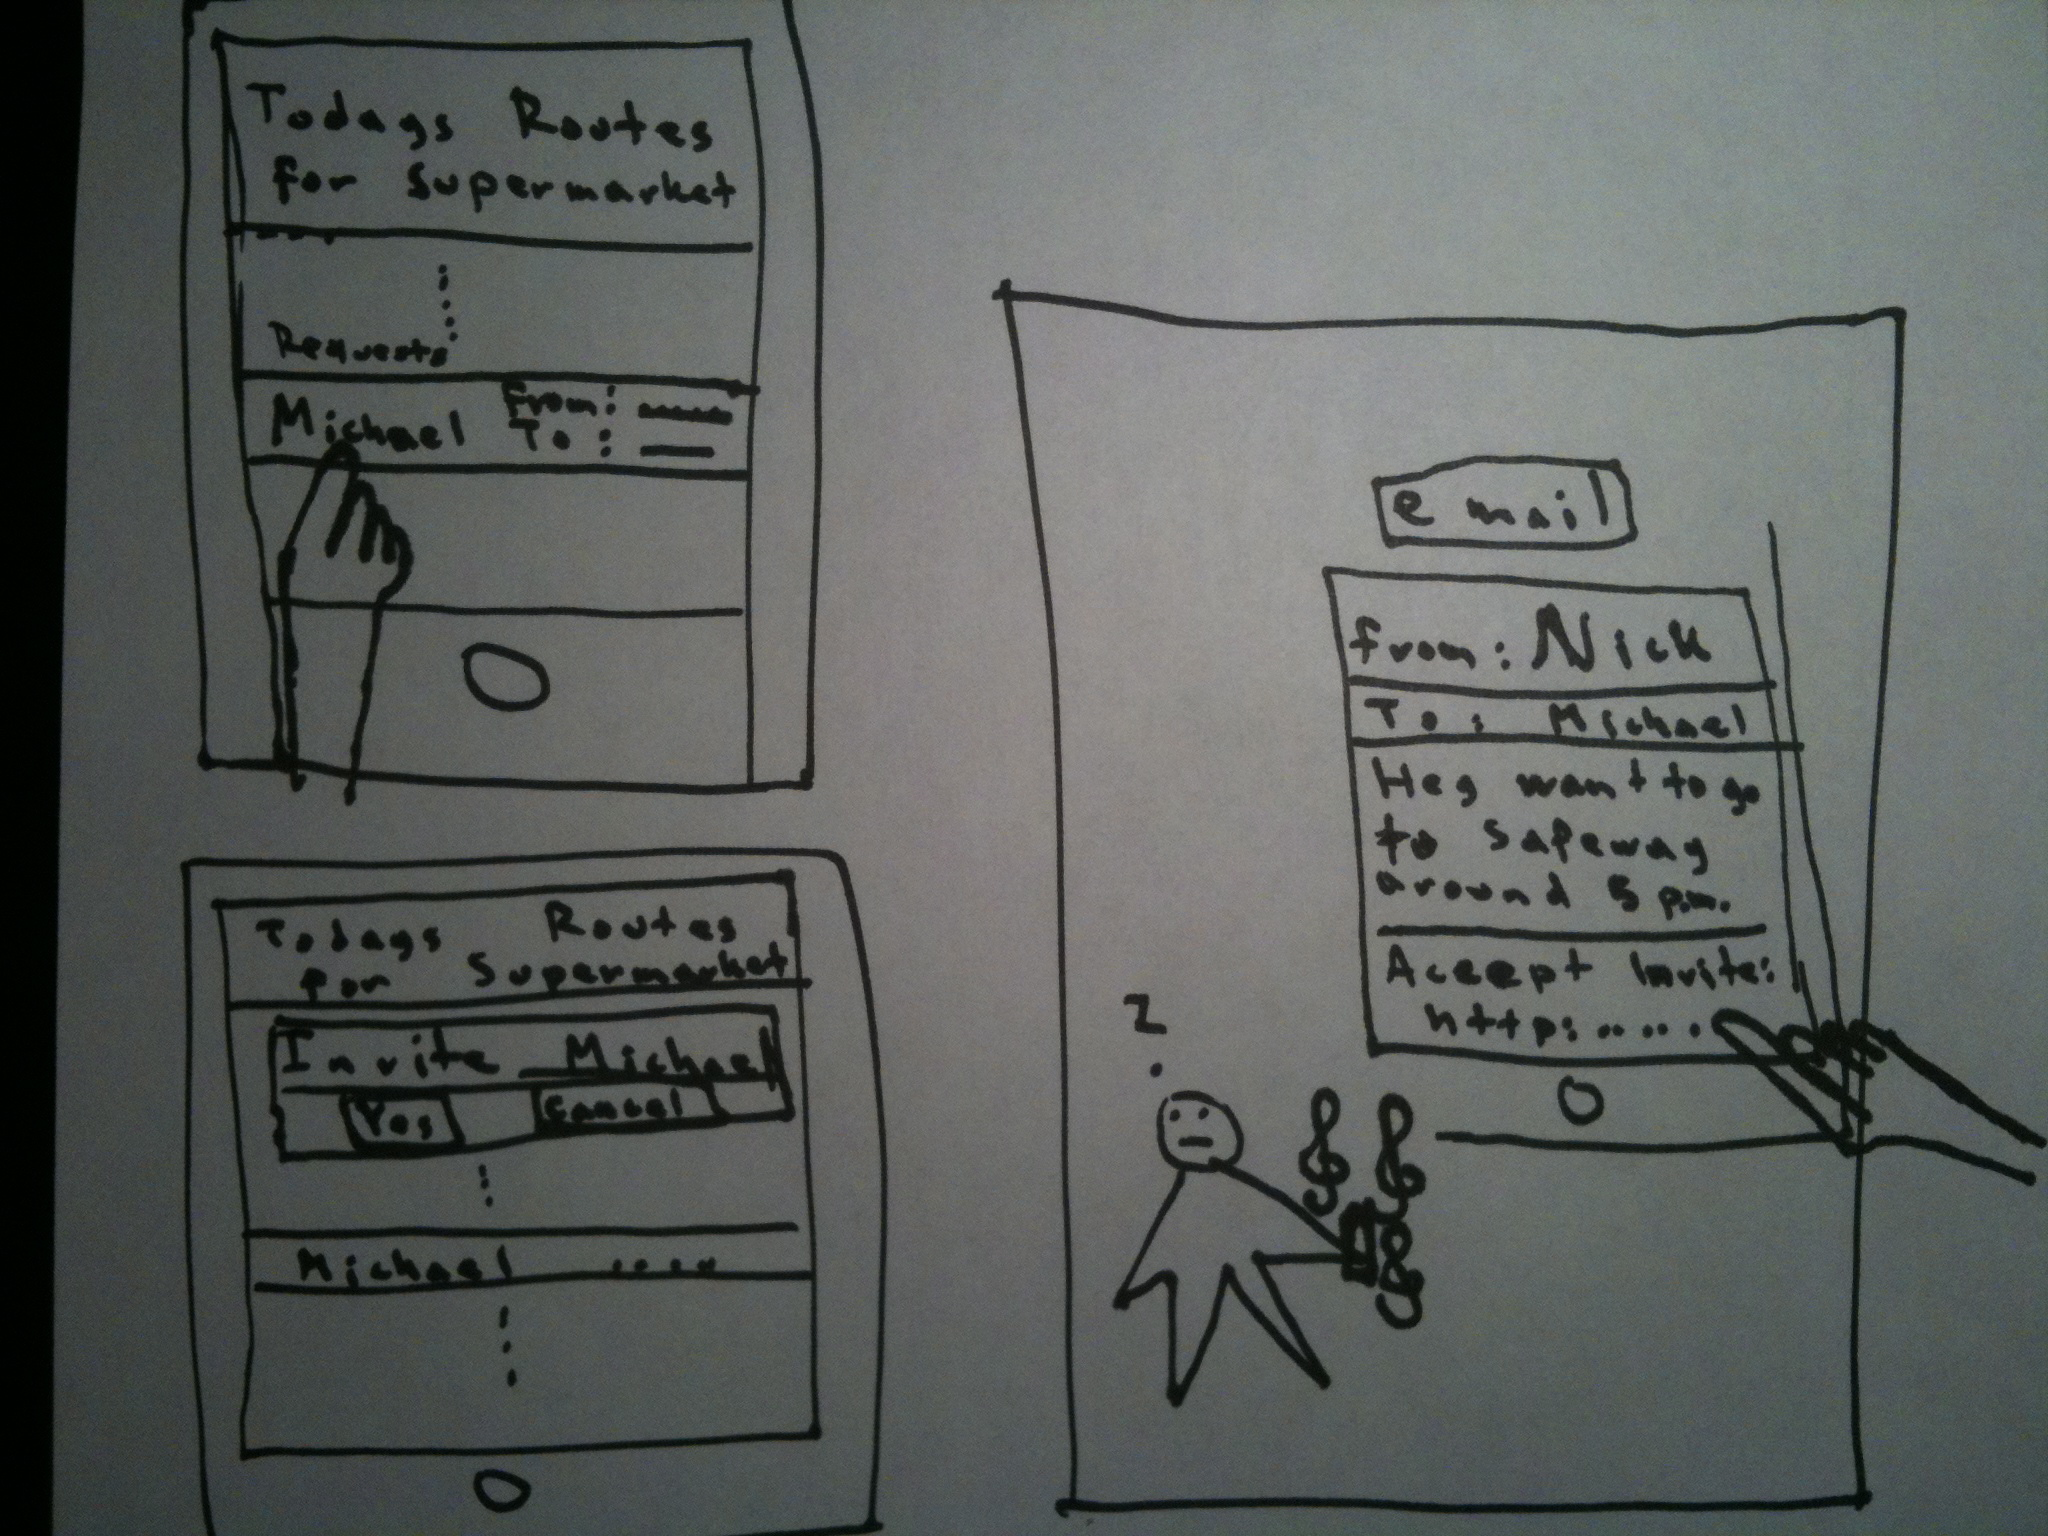 Todays Routes
for Supermarket
Requests
Michael From:
To:
Todays Routes
for Supermarket
Invite Michael
Yes Cancel
Michael ....
email
from: Nick
To: Michael
Hey want to go
to Safeway
around 5 p.m.
Accept Invite:
http:.....
?